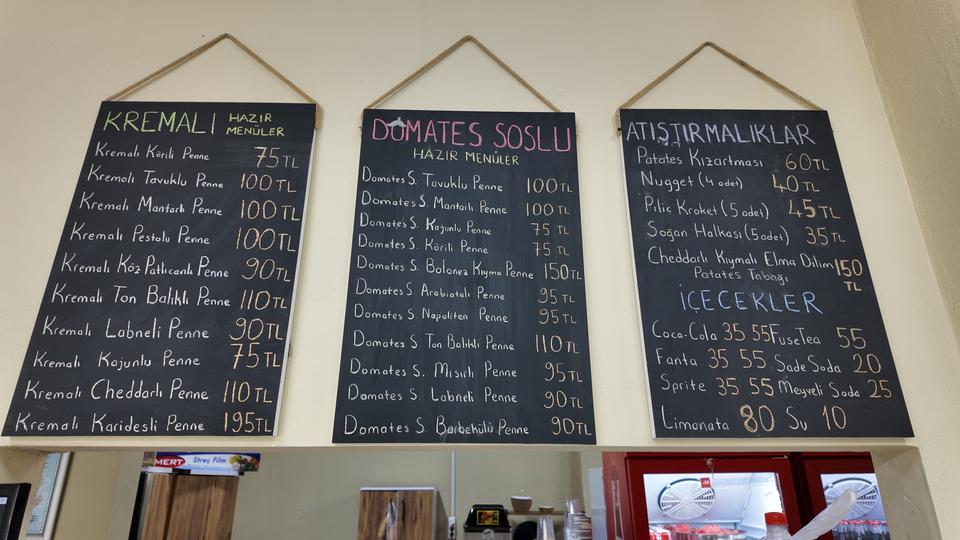 KREMALI HAZIR MENÜLER
Kremalı Körili Penne 75 TL
Kremalı Tavuklu Penne 100 TL
Kremalı Mantarlı Penne 100 TL
Kremalı Pestolu Penne 100 TL
Kremalı Köz Patlıcanlı Penne 90 TL
Kremalı Ton Balıklı Penne 110 TL
Kremalı Labneli Penne 90 TL
Kremalı Kajunlu Penne 75 TL
Kremalı Cheddarlı Penne 110 TL
Kremalı Karidesli Penne 195 TL
DOMATES SOSLU
HAZIR MENÜLER
Domates S. Tavuklu Penne 100 TL
Domates S. Mantarlı Penne 100 TL
Domates S. Kajunlu Penne 75 TL
Domates S. Körili Penne 75 TL
Domates S. Bolonez Kıyma Penne 150 TL
Domates S. Arabiatalı Penne 95 TL
Domates S. Napoliten Penne 95 TL
Domates S. Ton Balıklı Penne 110 TL
Domates S. Mısırlı Penne 95 TL
Domates S. Labneli Penne 90 TL
Domates S. Barbekülü Penne 90 TL
ATIŞTIRMALIKLAR
Patates Kızartması 60 TL
Nugget (4 adet) 40 TL
Piliç Kroket (5 adet) 45 TL
Soğan Halkası (5 adet) 35 TL
Cheddarlı Kıymalı Elma Dilim 150
Patates Tabağı TL
İÇECEKLER
Coca-Cola 35 55 FuseTea 55
Fanta 35 55 Sade Soda 20
Sprite 35 55 Meyveli Soda 25
Limonata 80 Su 10
MERT Streç Film